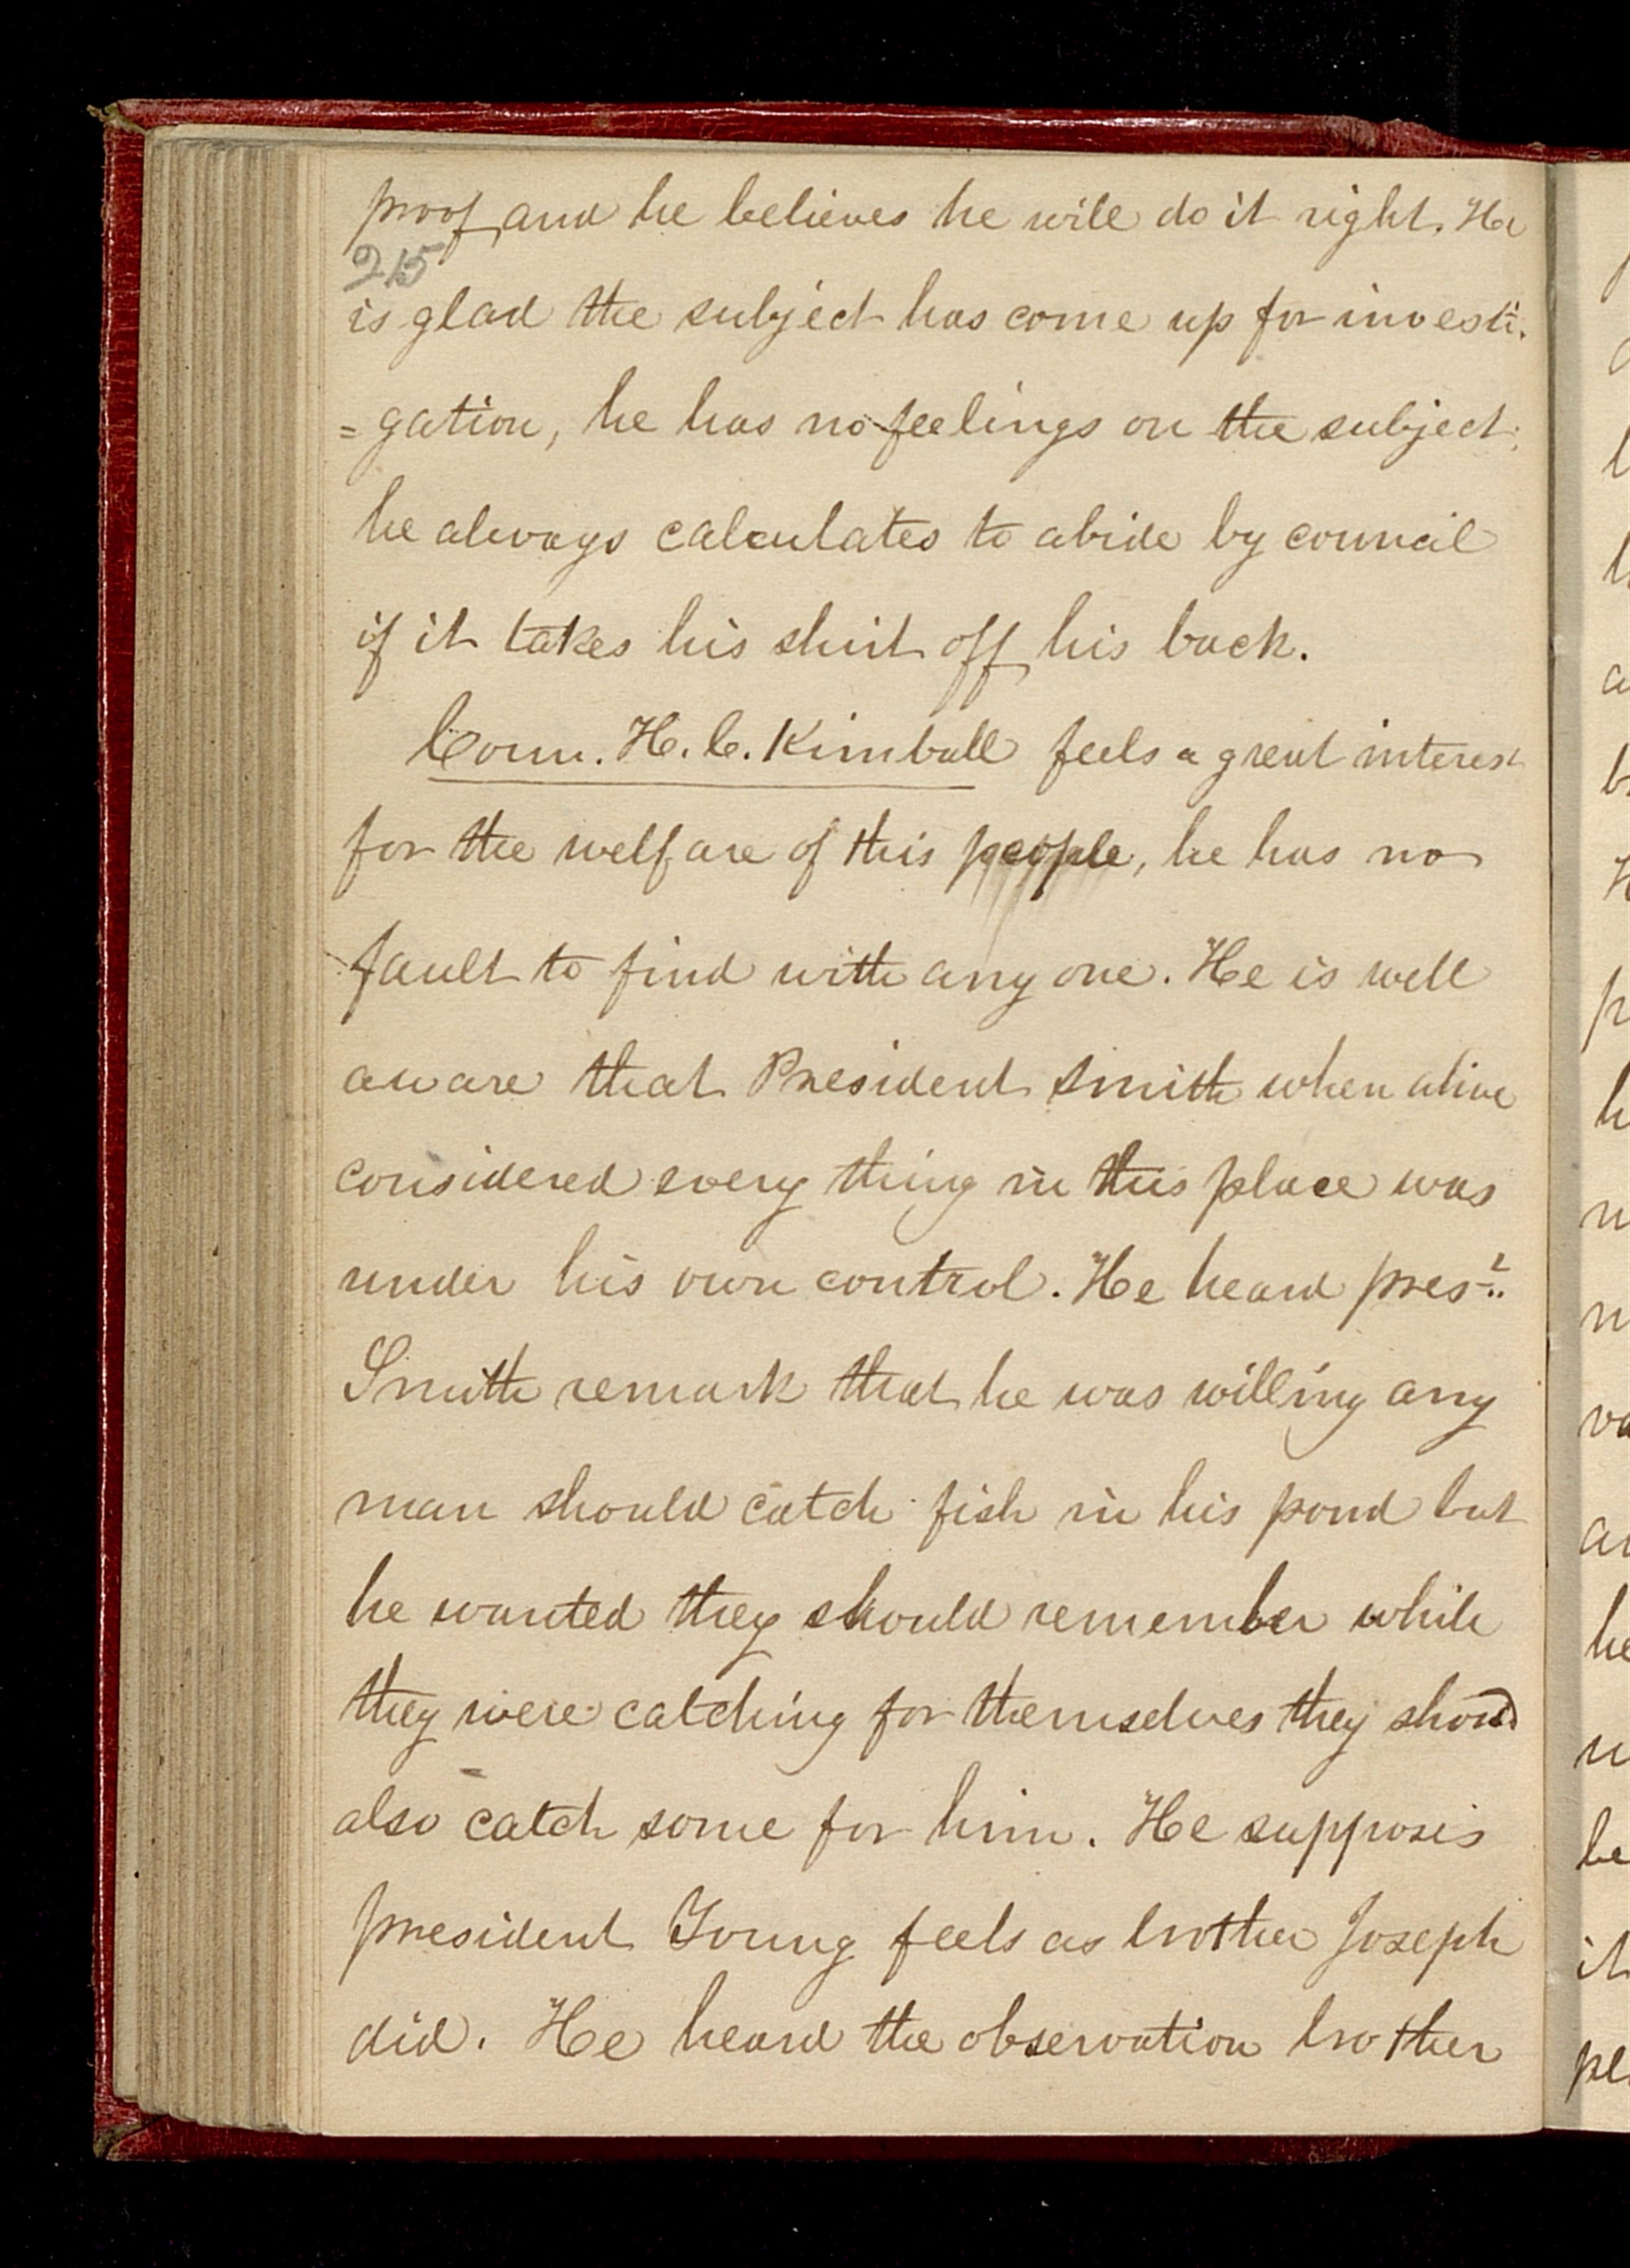 proof, and he believes he will do it right. He
215
is glad the subject has come up for investi-
=gation, he has no feelings on the subject;
he always calculates to abide by council
if it takes his shirt off his back.
Coun. H. C. Kimball feels a great interest
for the welfare of this people, he has no
fault to find with any one. He is well
aware that President Smith when alive
considered every thing in this place was
under his own control. He heard pres.t
Smith remark that he was willing any
man should catch fish in his pond but
he wanted they should remember while
they were catching for themselves they shoud
also catch some for him. He supposes
president Young feels as brother Joseph
did. He heard the observation brother